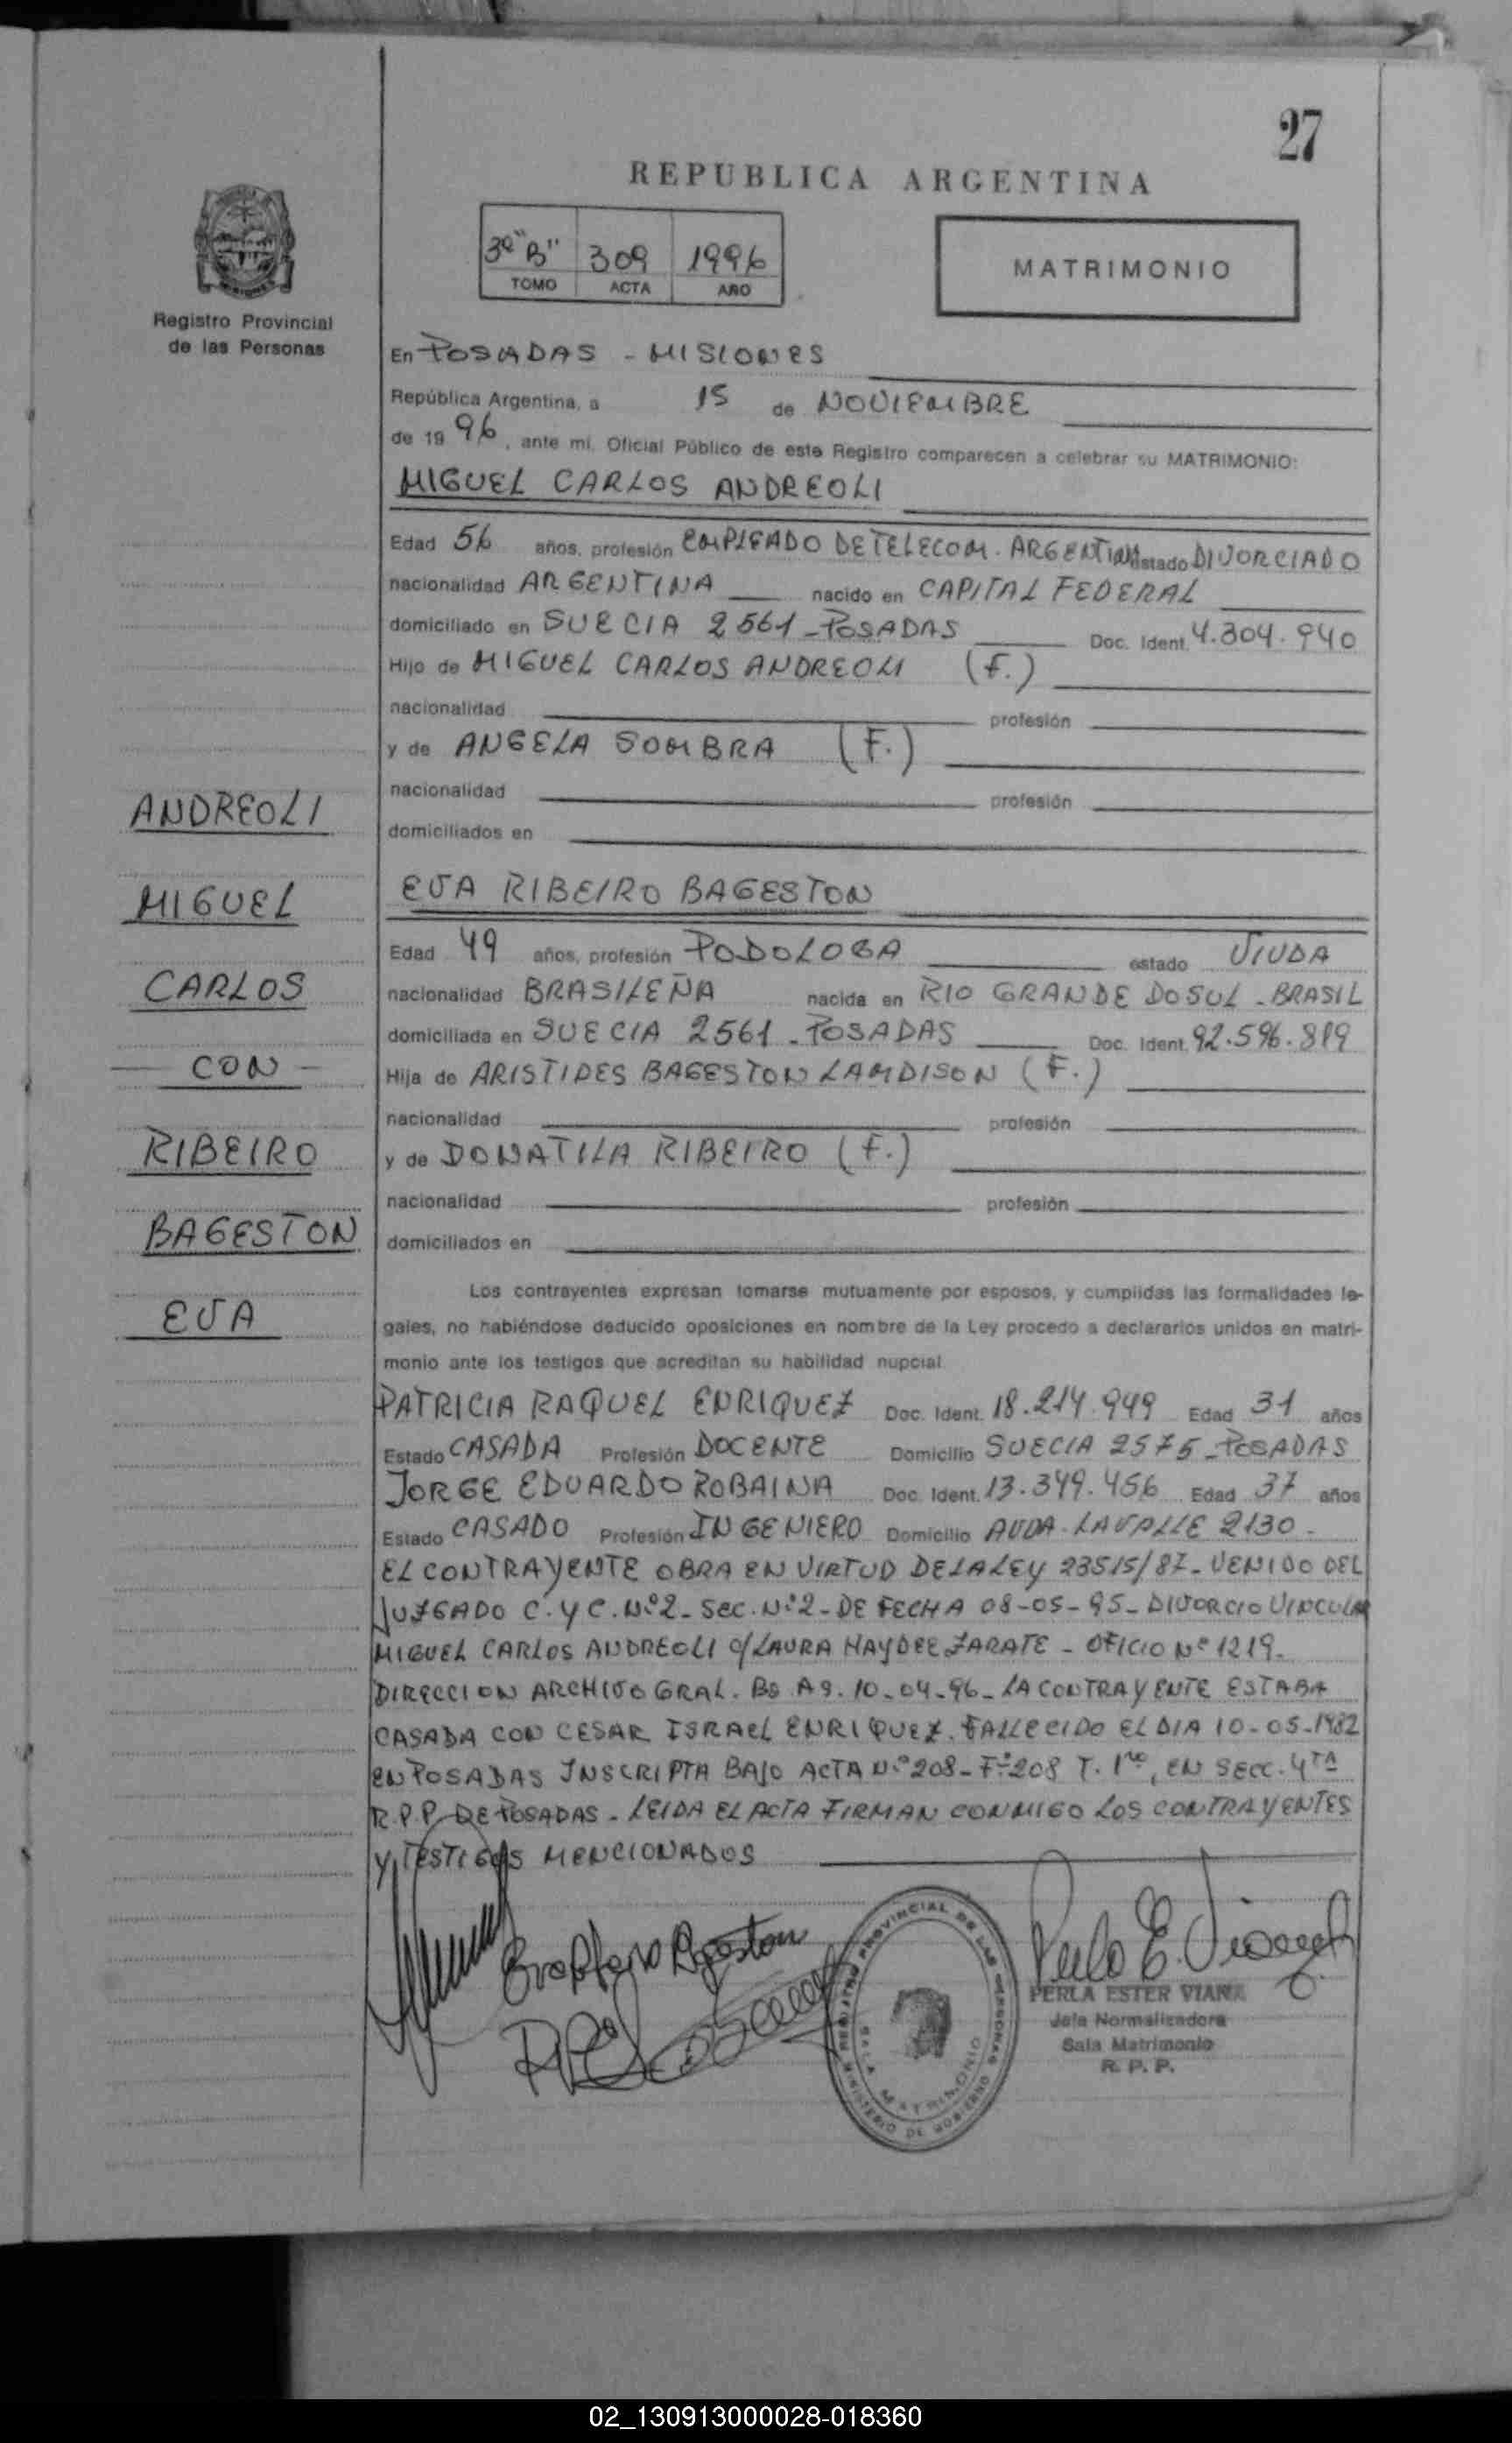 27
REPUBLICA ARGENTINA
3º "B" 309 1996
TOMO ACTA AÑO
MATRIMONIO
Registro Provincial
de las Personas
En POSADAS - MISIONES
República Argentina, a 15 de NOVIEMBRE
de 19 96, ante mi, Oficial Público de este Registro comparecen a celebrar su MATRIMONIO:
MIGUEL CARLOS ANDREOLI
Edad 56 años, profesión EMPLEADO DE TELECOM. ARGENTINA estado DIVORCIADO
nacionalidad ARGENTINA nacido en CAPITAL FEDERAL
domiciliado en SUECIA 2561 - POSADAS Doc. Ident. 4.304.940
Hijo de MIGUEL CARLOS ANDREOLI (F.)
nacionalidad profesión
y de ANGELA SOMBRA (F.)
nacionalidad profesión
domiciliados en
EVA RIBEIRO BAGESTON
Edad 49 años, profesión PODOLOGA estado VIUDA
nacionalidad BRASILEÑA nacida en RIO GRANDE DO SUL - BRASIL
domiciliada en SUECIA 2561 - POSADAS Doc. Ident. 92.596.819
Hija de ARISTIDES BAGESTON LAMDISON (F.)
nacionalidad profesión
y de DONATILA RIBEIRO (F.)
nacionalidad profesión
domiciliados en
ANDREOLI
MIGUEL
CARLOS
- CON -
RIBEIRO
BAGESTON
EVA
Los contrayentes expresan tomarse mutuamente por esposos, y cumplidas las formalidades le-
gales, no habiéndose deducido oposiciones en nombre de la Ley procedo a declararlos unidos en matri-
monio ante los testigos que acreditan su habilidad nupcial
PATRICIA RAQUEL ENRIQUEZ Doc. Ident. 18.214.949 Edad 31 años
Estado CASADA Profesión DOCENTE Domicilio SUECIA 2575 - POSADAS
JORGE EDUARDO ROBAINA Doc. Ident. 13.349.456 Edad 37 años
Estado CASADO Profesión INGENIERO Domicilio AVDA. LAVALLE 2130 -
EL CONTRAYENTE OBRA EN VIRTUD DE LA LEY 23515/87 - VENIDO DEL
JUZGADO C. Y C. Nº 2 - SEC. Nº 2 - DE FECHA 08-05-95 - DIVORCIO VINCULAR
MIGUEL CARLOS ANDREOLI c/ LAURA HAYDEE ZARATE - OFICIO Nº 1219 -
DIRECCION ARCHIVO GRAL. BS AS. 10-04-96 - LA CONTRAYENTE ESTABA
CASADA CON CESAR ISRAEL ENRIQUEZ. FALLECIDO EL DIA 10-05-1982
EN POSADAS INSCRIPTA BAJO ACTA Nº 208 - Fº 208 T. 1ro, EN SECC. 4TA
R.P.P. DE POSADAS - LEIDA EL ACTA FIRMAN CONMIGO LOS CONTRAYENTES
Y TESTIGOS MENCIONADOS
Eva Ribeiro Bageston
REGISTRO PROVINCIAL DE LAS PERSONAS
SALA MATRIMONIO
MINISTERIO DE GOBIERNO
PERLA ESTER VIANA
Jefa Normalizadora
Sala Matrimonio
R. P. P.
02_130913000028-018360